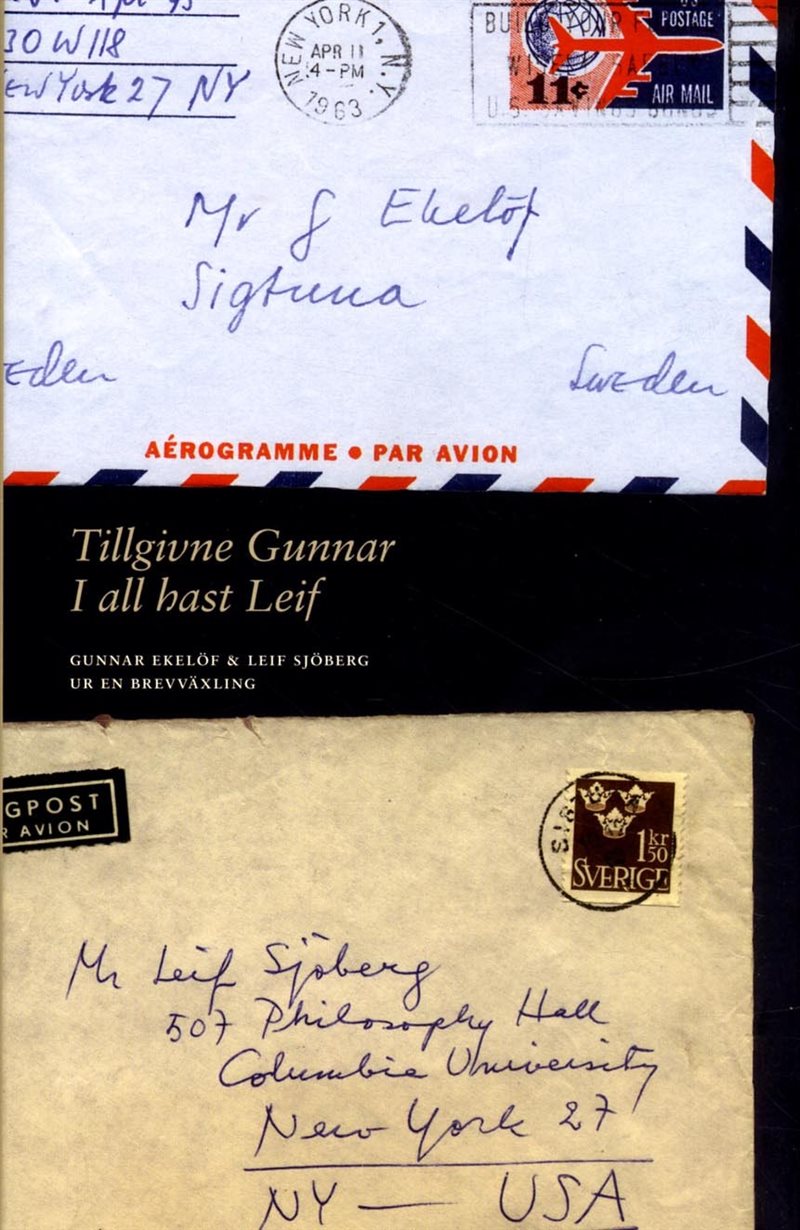 30 W 118
New York 27 NY
NEW YORK 1, N.Y.
APR 11
4-PM
1963
POSTAGE
11¢
AIR MAIL
U.S. SAVINGS BONDS
Mr G Ekelöf
Sigtuna
eden
Sweden
AÉROGRAMME • PAR AVION
Tillgivne Gunnar
I all hast Leif
GUNNAR EKELÖF & LEIF SJÖBERG
UR EN BREVVÄXLING
GPOST
R AVION
SIG
1 kr
50
SVERIGE
Mr Leif Sjöberg
507 Philosophy Hall
Columbia University
New York 27
NY — USA